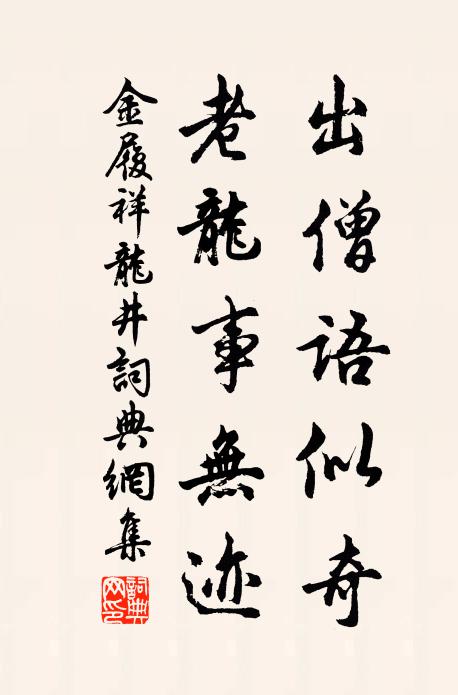 出僧語似奇
老龍事無迹
金履祥龍井詞典網集
詞典網印